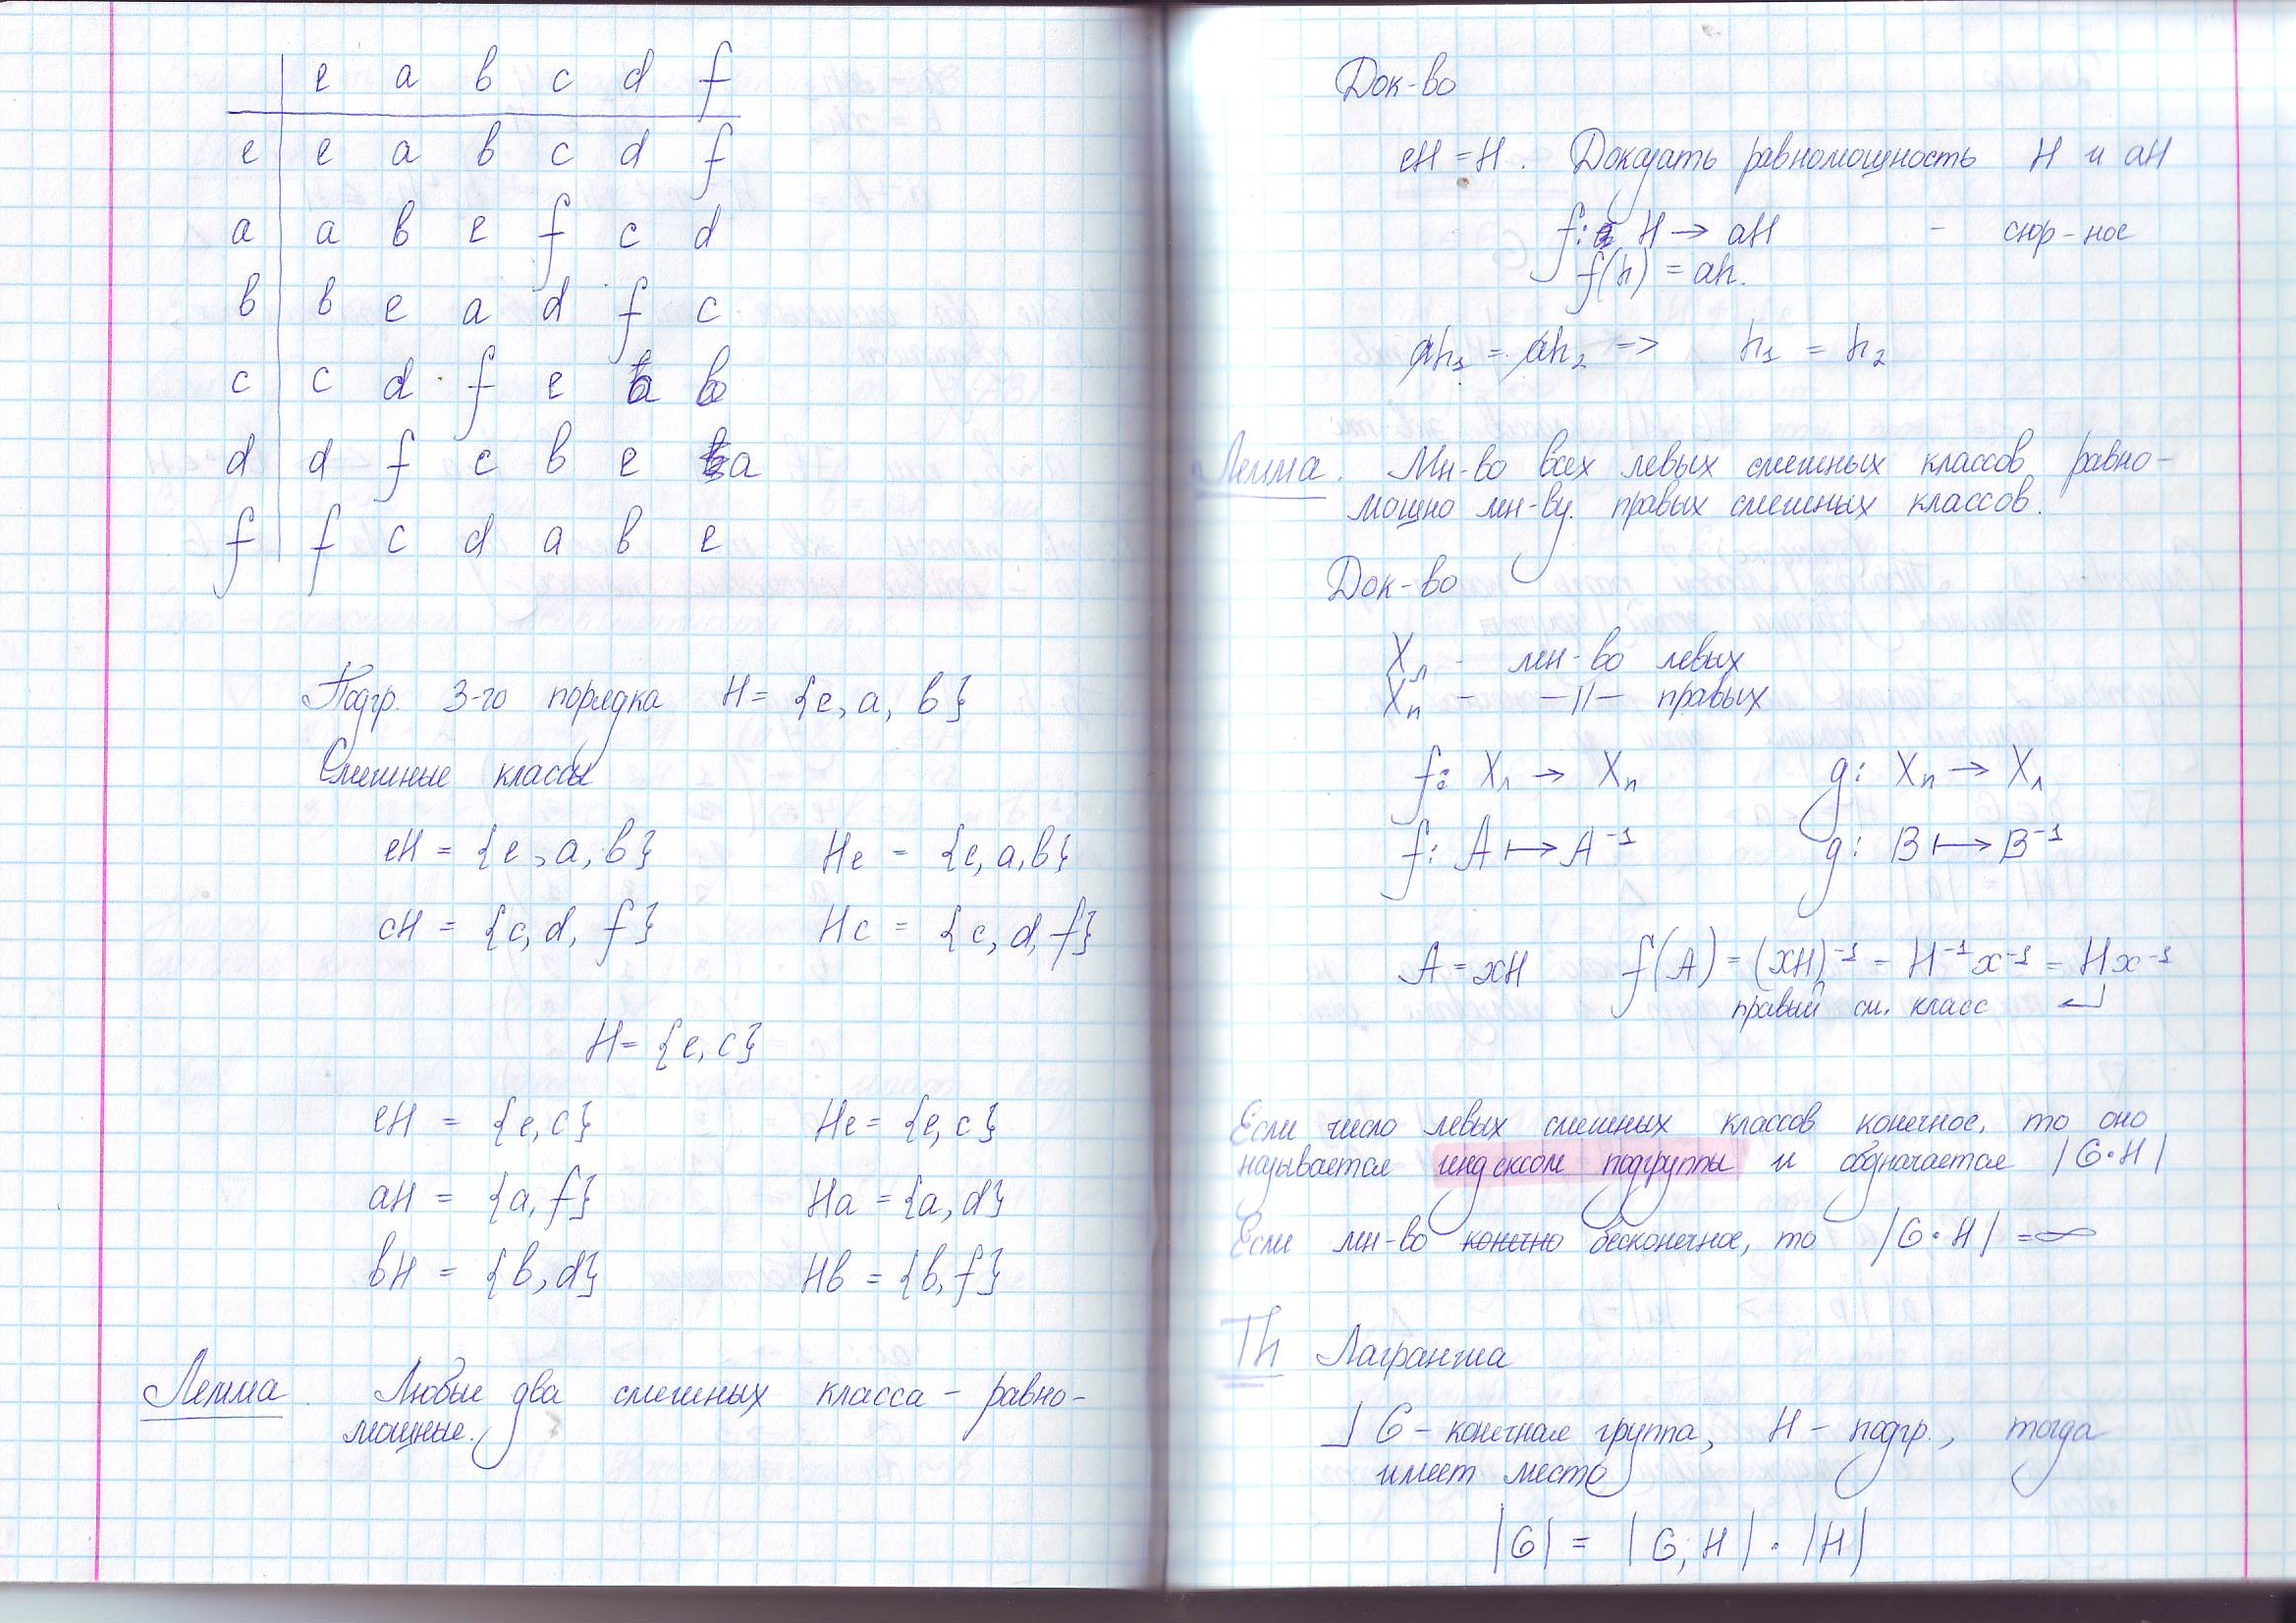 e a b c d f
e e a b c d f
a a b e f c d
b b e a d f c
c c d f e a b
d d f c b e a
f f c d a b e
Подгр. 3-го порядка H = {e, a, b}
Смежные классы
eH = {e, a, b} He = {e, a, b}
cH = {c, d, f} Hc = {c, d, f}
H = {e, c}
eH = {e, c} He = {e, c}
aH = {a, f} Ha = {a, d}
bH = {b, d} Hb = {b, f}
Лемма. Любые два смежных класса - равно-
мощные.
Док-во
eH = H. Доказать равномощность H и aH
f: H → aH - сюр-ное
f(h) = ah.
ah₁ = ah₂ => h₁ = h₂
Лемма. Мн-во всех левых смежных классов равно-
мощно мн-ву правых смежных классов.
Док-во
Xл - мн-во левых
Xп - —//— правых
f: Xл → Xп g: Xп → Xл
f: A ↦ A⁻¹ g: B ↦ B⁻¹
A = xH f(A) = (xH)⁻¹ = H⁻¹x⁻¹ = Hx⁻¹
правый см. класс ↵
Если число левых смежных классов конечное, то оно
называется индексом подгруппы и обозначается |G·H|
Если мн-во конечно бесконечное, то |G·H| = ∞
Th Лагранжа
⅃ G - конечная группа, H - подгр., тогда
имеет место
|G| = |G, H| · |H|